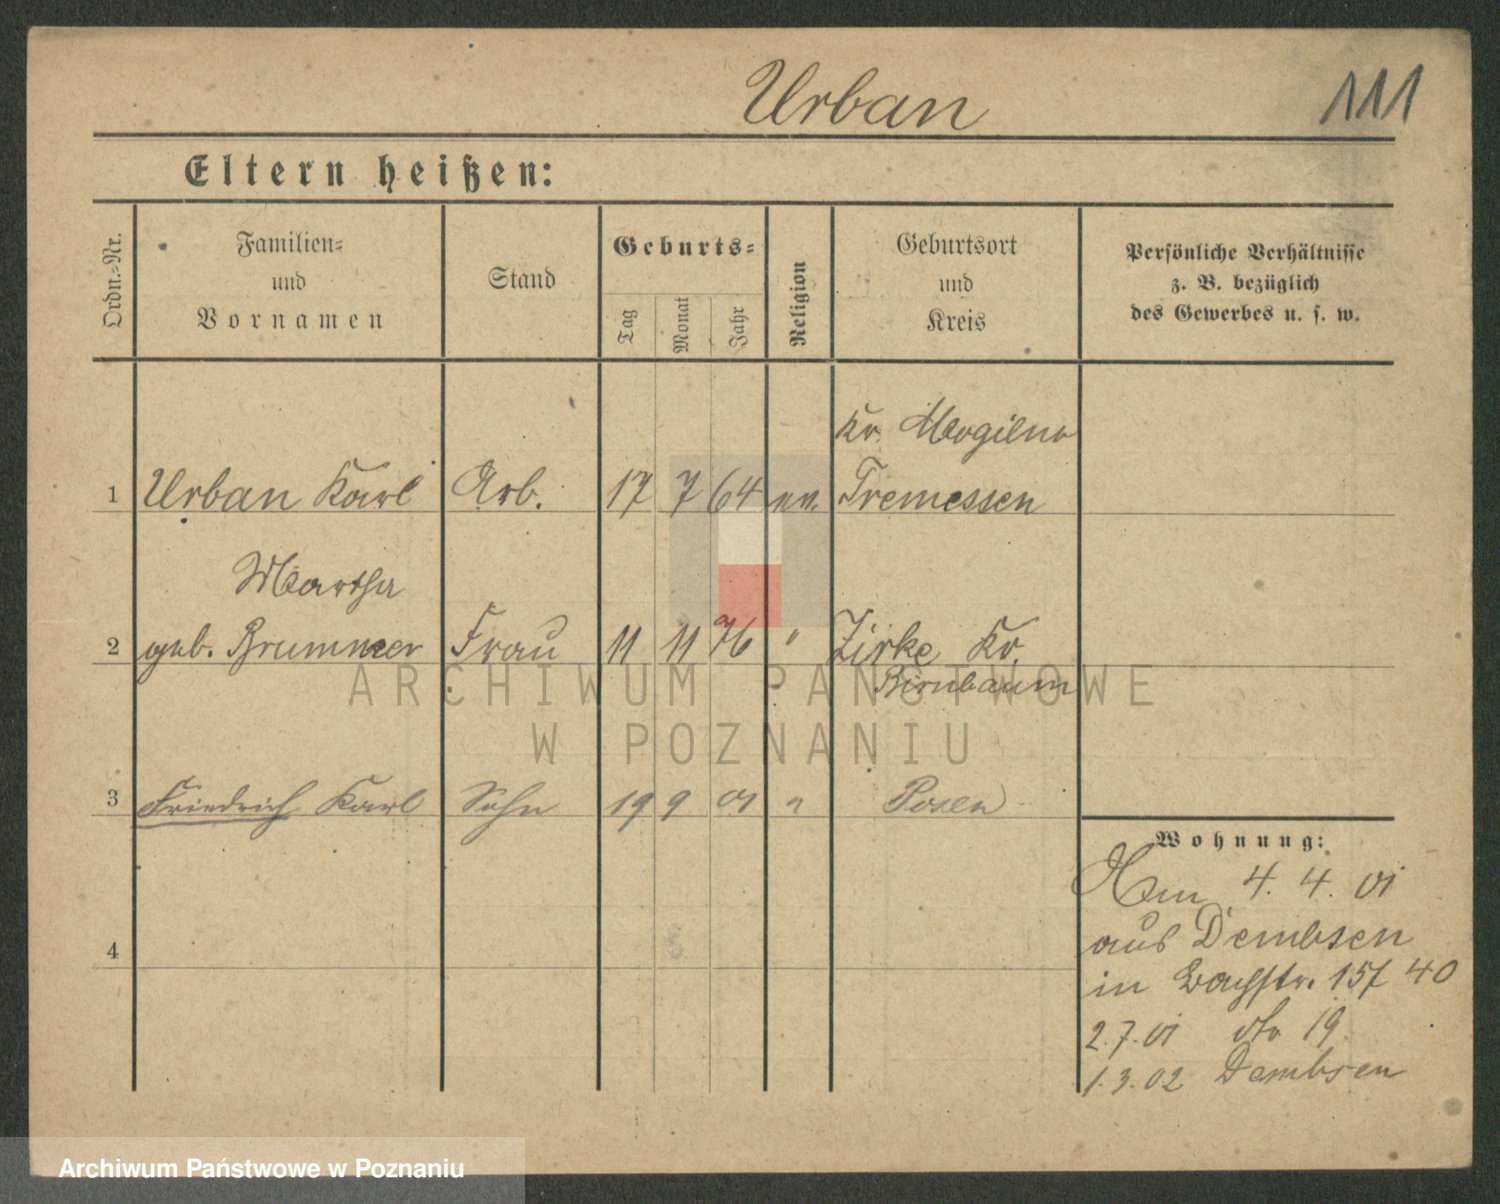 Urban 111
Eltern heißen:
Ordn.=Nr.
Familien=
und
Vornamen
Stand
Geburts=
Tag Monat Jahr
Religion
Geburtsort
und
Kreis
Persönliche Verhältnisse
z. B. bezüglich
des Gewerbes u. s. w.
Kr. Mogilno
1 Urban Karl Arb. 17 7 64 ev. Tremessen
Martha
2 geb. Brummer Frau 11 11 76 " Zirke Kr.
Birnbaum
3 Friedrich Karl Sohn 19 9 01 " Posen
4
Wohnung:
4. 4. 01
aus Dembsen
in 40
2.7.01 19
1.3.02 Dembsen
ARCHIWUM PAŃSTWOWE
W POZNANIU
Archiwum Państwowe w Poznaniu